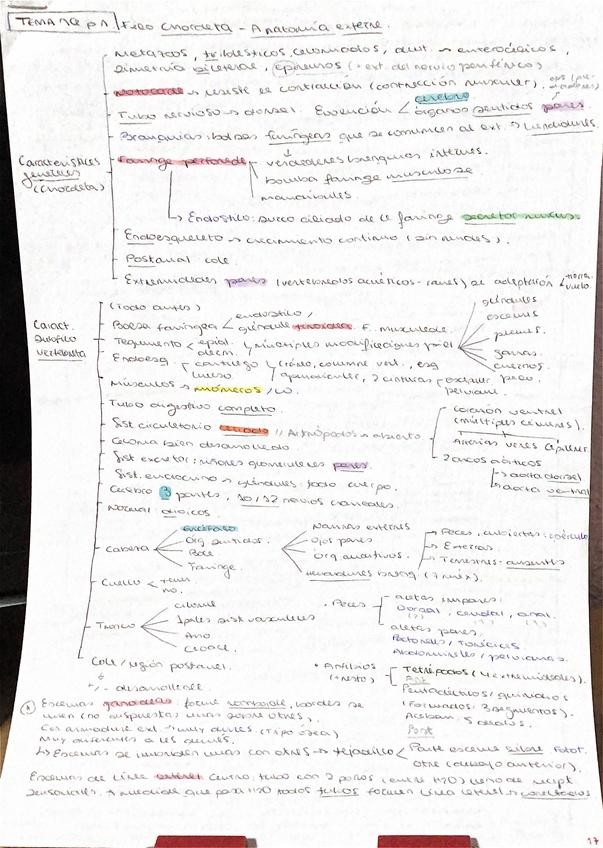 TEMA 12 p1 Filo Chordata - Anatomía externa.
metazoos, triblásticos, celomados, deut. → enterocélicos,
simetría bilateral, epineuros (+ ext. del nervio periférico)
Notocorda → resiste el contracción (contracción muscular).
Tubo nervioso → dorsal. Evolución < cerebro
órganos sentidos pares.
Branquias: bolsas faríngeas que se comunican al ext. → hendiduras
Características generales (Chordata)
Faringe perforada
verdaderas branquias internas.
bomba faringe musculosa
mandíbulas
↳ Endostilo: surco ciliado de la faringe secretor mucus.
Endoesqueleto → crecimiento continuo (sin mudas).
Postanal cola.
Extremidades pares (vertebrados acuáticos - ) se adaptación
Caract. subfilo vertebrata
(Todo antes)
Bolsa faríngea < endostilo /
glándula tiroidea F. musculada
Tegumento < epid.
derm. múltiples modificaciones piel
glándulas
escamas
plumas
garras
cuernos
Endoesq. cartílago
hueso
cráneo, columna vert., esq
apendicular, 2 cinturas
escapular
pelviana
Músculos → miómeros /
Tubo digestivo completo.
Sist circulatorio cerrado // Artrópodos → abierto
corazón ventral
(múltiples cámaras).
Arterias venas capilares
2 arcos aórticos
aorta dorsal
aorta ventral
Celoma bien desarrollado.
Sist excretor: riñones glomerulares pares.
Sist. endocrino → glándulas: todo cuerpo.
Cerebro 3 partes, 10/12 nervios craneales.
Normal: dioicos
Cabeza
encéfalo
Org sentidos.
Boca
Faringe.
Narinas externas
Ojos pares
Org auditivos.
Hendiduras branq (7 máx).
Peces, cubiertas: opérculo
Externas
Terrestres: ausentes
Cuello < + cuan
no.
Tronco
celoma
ppales sist vasculares
Ano
Cloaca
• Peces
aletas impares:
Dorsal, caudal, anal.
(1) (1) (1)
aletas pares.
Pectorales / torácicas
Abdominales / pelvianas.
Cola / región postanal.
+/- desarrollada.
• Anfibios
(+ resto)
Tetrápodos (4 extremidades).
Ant
Pentadáctilos / quiridios
(Formados: 3 segmentos).
Acaban: 5 dedos.
Post
Escamas ganoideas: forma romboide, bordes se
unen (no superpuestas unas sobre otras).
Con armadura ext → muy duras (tipo ósea)
Muy diferentes a las demás.
↳ Escamas se imbrican unas con otras → tejadillo < Parte escama sobre
otra (debajo anterior).
Escamas de línea lateral centro: tubo con 2 poros (entre H2O) lleno de recept.
sensoriales. A medida que pasa H2O todos tubos forman línea lateral → conectados
17